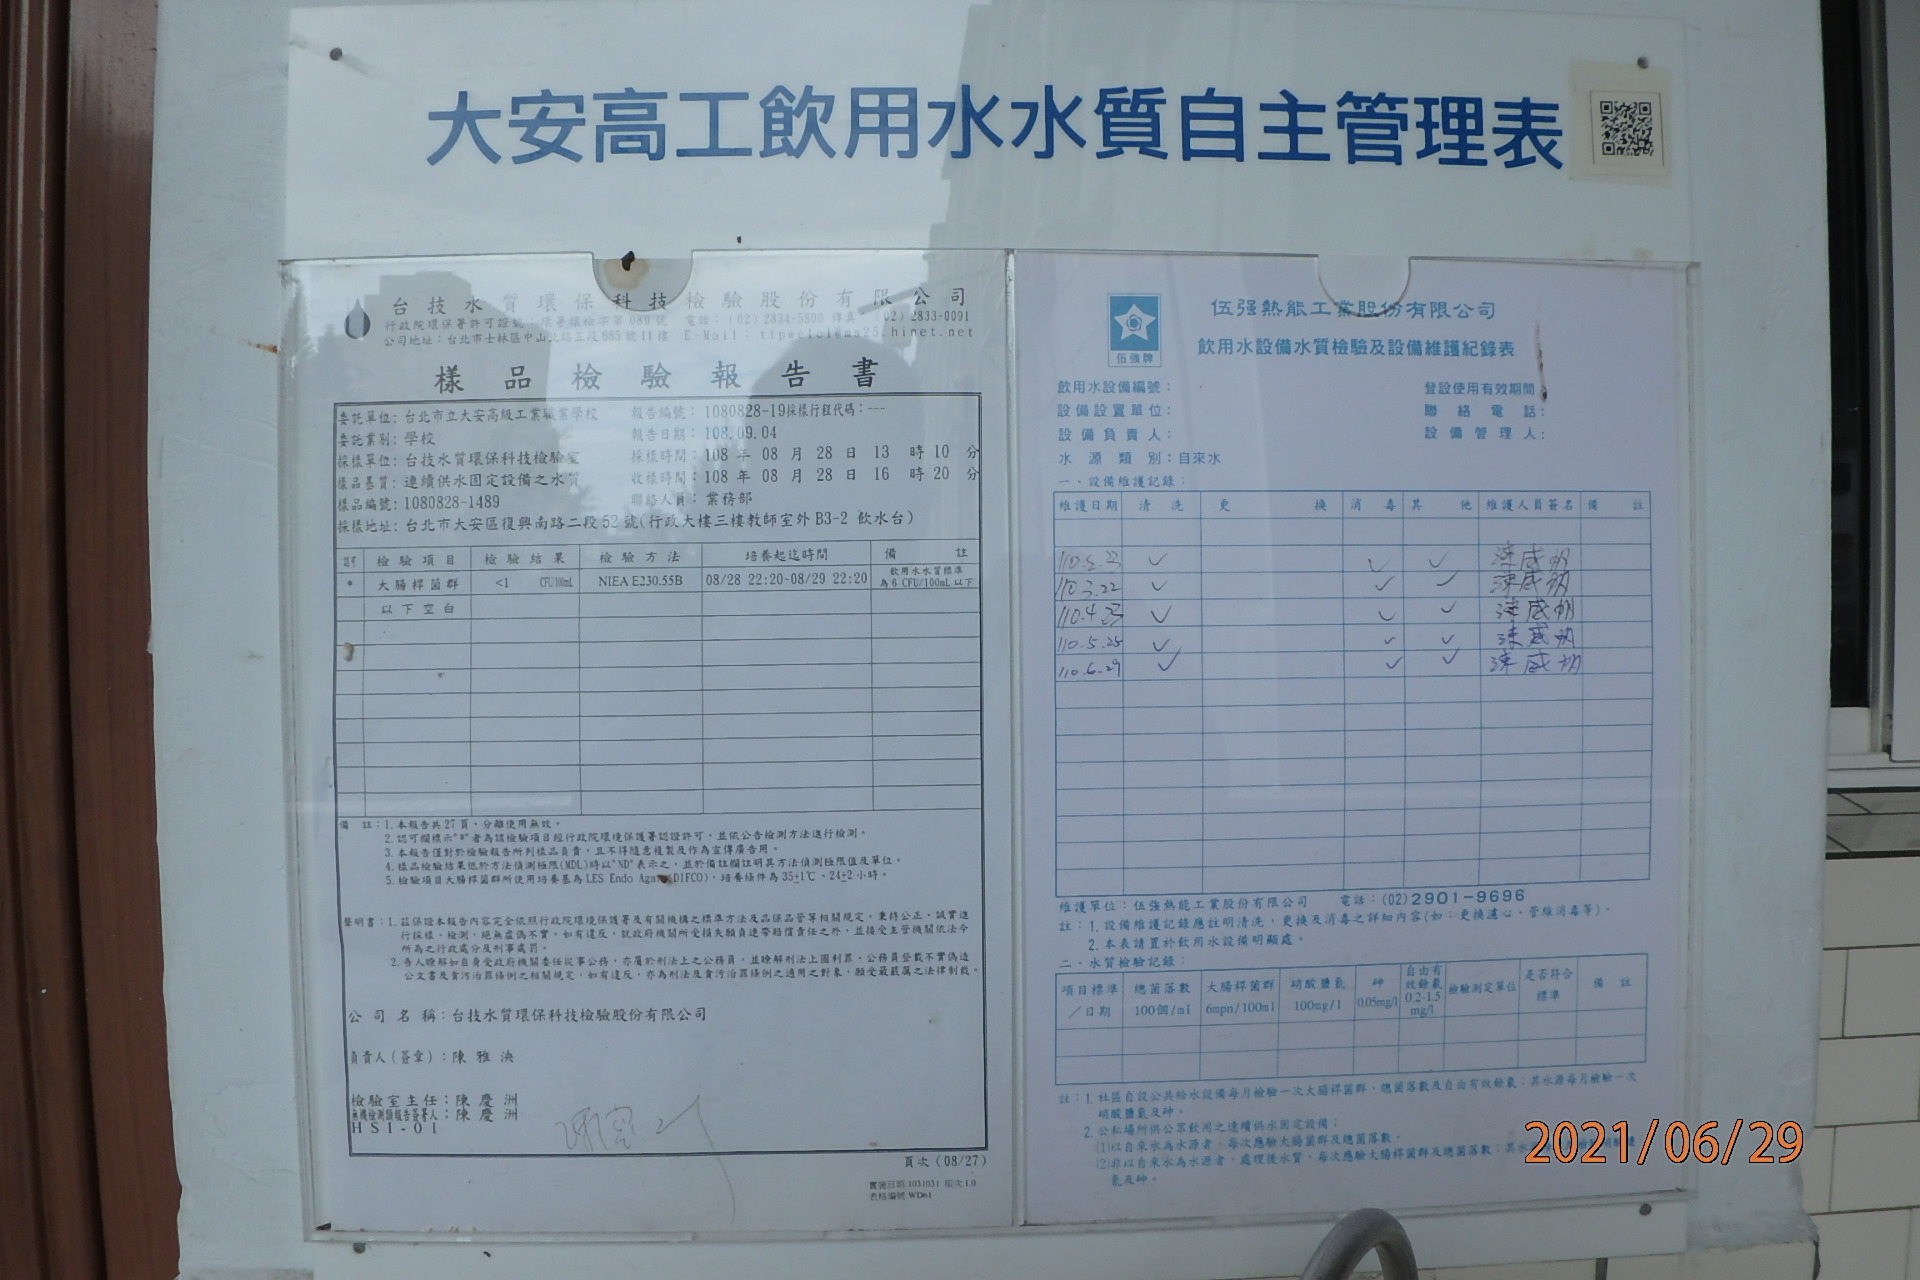 大安高工飲用水水質自主管理表
台技水質環保科技檢驗股份有限公司
行政院環保署許可證號：環署環檢字第089號 電話：(02)2834-5800 傳真：(02)2833-0091
公司地址：台北市士林區中山北路五段685號11樓 E-Mail：
樣品檢驗報告書
委託單位：台北市立大安高級工業職業學校 報告編號：1080828-19採樣行程代碼：---
委託業別：學校 報告日期：108.09.04
採樣單位：台技水質環保科技檢驗室 採樣時間：108 年 08 月 28 日 13 時 10 分
樣品基質：連續供水固定設備之水質 收樣時間：108 年 08 月 28 日 16 時 20 分
樣品編號：1080828-1489 聯絡人員：業務部
採樣地址：台北市大安區復興南路二段52號(行政大樓三樓教師室外B3-2 飲水台)
認可 檢驗項目 檢驗結果 檢驗方法 培養起迄時間 備註
* 大腸桿菌群 <1 CFU/100mL NIEA E230.55B 08/28 22:20~08/29 22:20 飲用水水質標準為6 CFU/100mL以下
以下空白
備 註：1.本報告共27頁，分離使用無效。
2.認可欄標示"*"者為該檢驗項目經行政院環境保護署認證許可，並依公告檢測方法進行檢測。
3.本報告僅對於檢驗報告所列樣品負責，且不得隨意複製及作為宣傳廣告用。
4.樣品檢驗結果低於方法偵測極限(MDL)時以"ND"表示之，並於備註欄註明其方法偵測極限值及單位。
5.檢驗項目大腸桿菌群所使用培養基為LES Endo Agar(DIFCO)，培養條件為35±1℃、24±2小時。
聲明書：1.茲保證本報告內容完全依照行政院環境保護署及有關機構之標準方法及品保品管等相關規定，秉持公正、誠實進
行採樣、檢測，絕無虛偽不實。如有違反，就政府機關所受損失願負連帶賠償責任之外，並接受主管機關依法令
所為之行政處分及刑事處罰。
2.吾人瞭解如自身受政府機關委任從事公務，亦屬於刑法上之公務員，並瞭解刑法上圖利罪、公務員登載不實偽造
公文書及貪污治罪條例之相關規定，如有違反，亦為刑法及貪污治罪條例之適用之對象，願受最嚴厲之法律制裁。
公司名稱：台技水質環保科技檢驗股份有限公司
負責人(簽章)：陳雅泱
檢驗室主任：陳慶洲
無機檢測類報告簽署人：陳慶洲
HSI-01
頁次(08/27)
實施日期:1031031 版次1.0
表格編號:WD61
伍強牌
伍强熱能工業股份有限公司
飲用水設備水質檢驗及設備維護紀錄表
飲用水設備編號： 登設使用有效期間：
設備設置單位： 聯絡電話：
設備負責人： 設備管理人：
水源類別：自來水
一、設備維護記錄：
維護日期 清洗 更換 消毒 其他 維護人員簽名 備註
110.3.22 ✓ ✓ ✓
110.4.23 ✓ ✓ ✓
110.5.25 ✓ ✓ ✓
110.6.29 ✓ ✓ ✓
維護單位：伍強熱能工業股份有限公司 電話：(02)2901-9696
註：1.設備維護記錄應註明清洗，更換及消毒之詳細內容(如：更換濾心、管維消毒等)。
2.本表請置於飲用水設備明顯處。
二、水質檢驗記錄：
項目標準／日期 總菌落數100個/ml 大腸桿菌群6mpn/100ml 硝酸鹽氮100mg/l 砷0.05mg/l 自由有效餘氯0.2-1.5mg/l 檢驗測定單位 是否符合標準 備註
註：1.社區自設公共給水設備每月檢驗一次大腸桿菌群，總菌落數及自由有效餘氯；其水源每月檢驗一次
硝酸鹽氮及砷。
2.公私場所供公眾飲用之連續供水固定設備；
(1)以自來水為水源者，每次應驗大腸桿菌群及總菌落數。
(2)非以自來水為水源者，處理後水質，每次應驗大腸桿菌群及總菌落數；其水
氮及砷。
2021/06/29